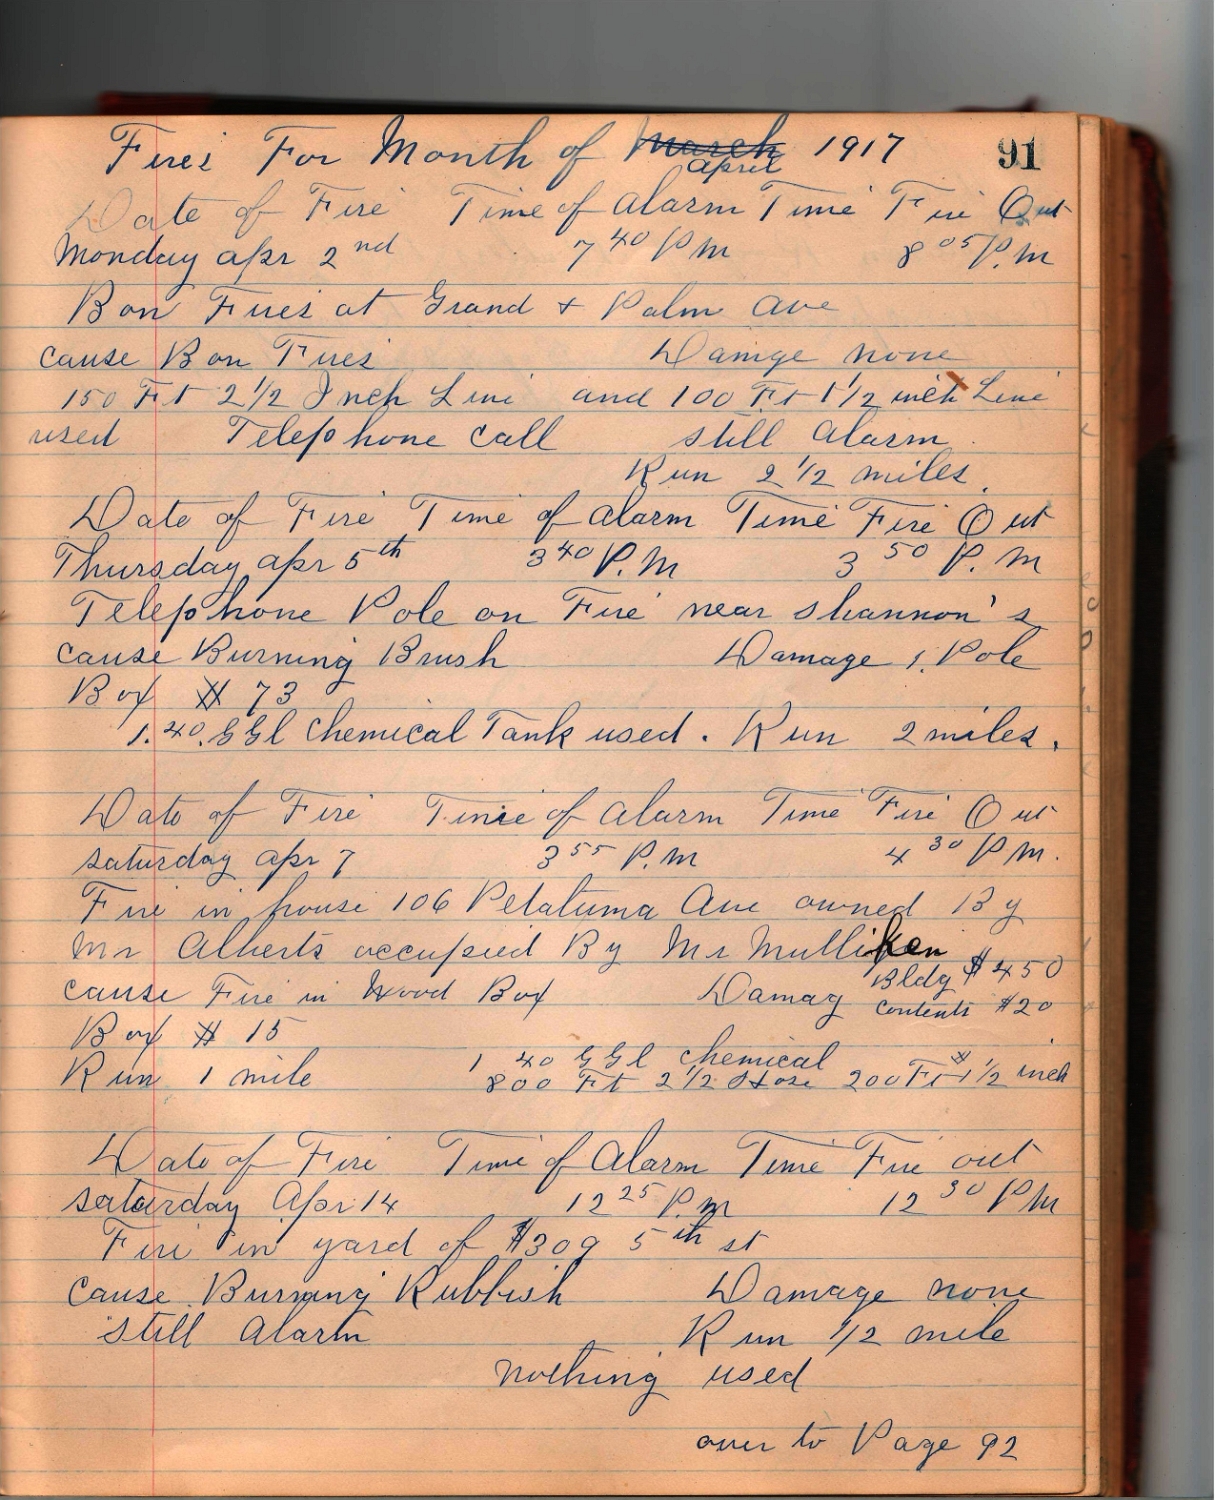 Fires For Month of March 1917 91
april
Date of Fire Time of alarm Time Fire Out
Monday apr 2nd 7 40 P.M 8 05 P.M
Bon Fires at Grand + Palm ave
cause Bon Fires Damge none
150 Ft 2 1/2 Inch Line and 100 Ft 1 1/2 inch Line
used Telephone call still alarm
Run 2 1/2 miles.
Date of Fire Time of alarm Time Fire Out
Thursday apr 5th 3 40 P.M 3 50 P.M
Telephone Pole on Fire near shannon's
cause Burning Brush Damage 1. Pole
Box # 73
1. 40. GGl chemical Tank used. Run 2 miles.
Date of Fire Time of alarm Time Fire Out
saturday apr 7 3 55 P.M 4 30 P M.
Fire in house 106 Petaluma Ave owned By
Mr Alberts occupied By Mr Mulliken
cause Fire in Wood Box Damag Bldg $450
contents $20
Box # 15
Run 1 mile 1 40 GGl chemical
800 Ft 2 1/2 Hose 200 Ft 1 1/2 inch
Date of Fire Time of Alarm Time Fire out
saturday Apr 14 12 25 P.M 12 30 P M
Fire in yard of #309 5th st
cause Burning Rubbish Damage none
still Alarm Run 1/2 mile
nothing used
over to Page 92